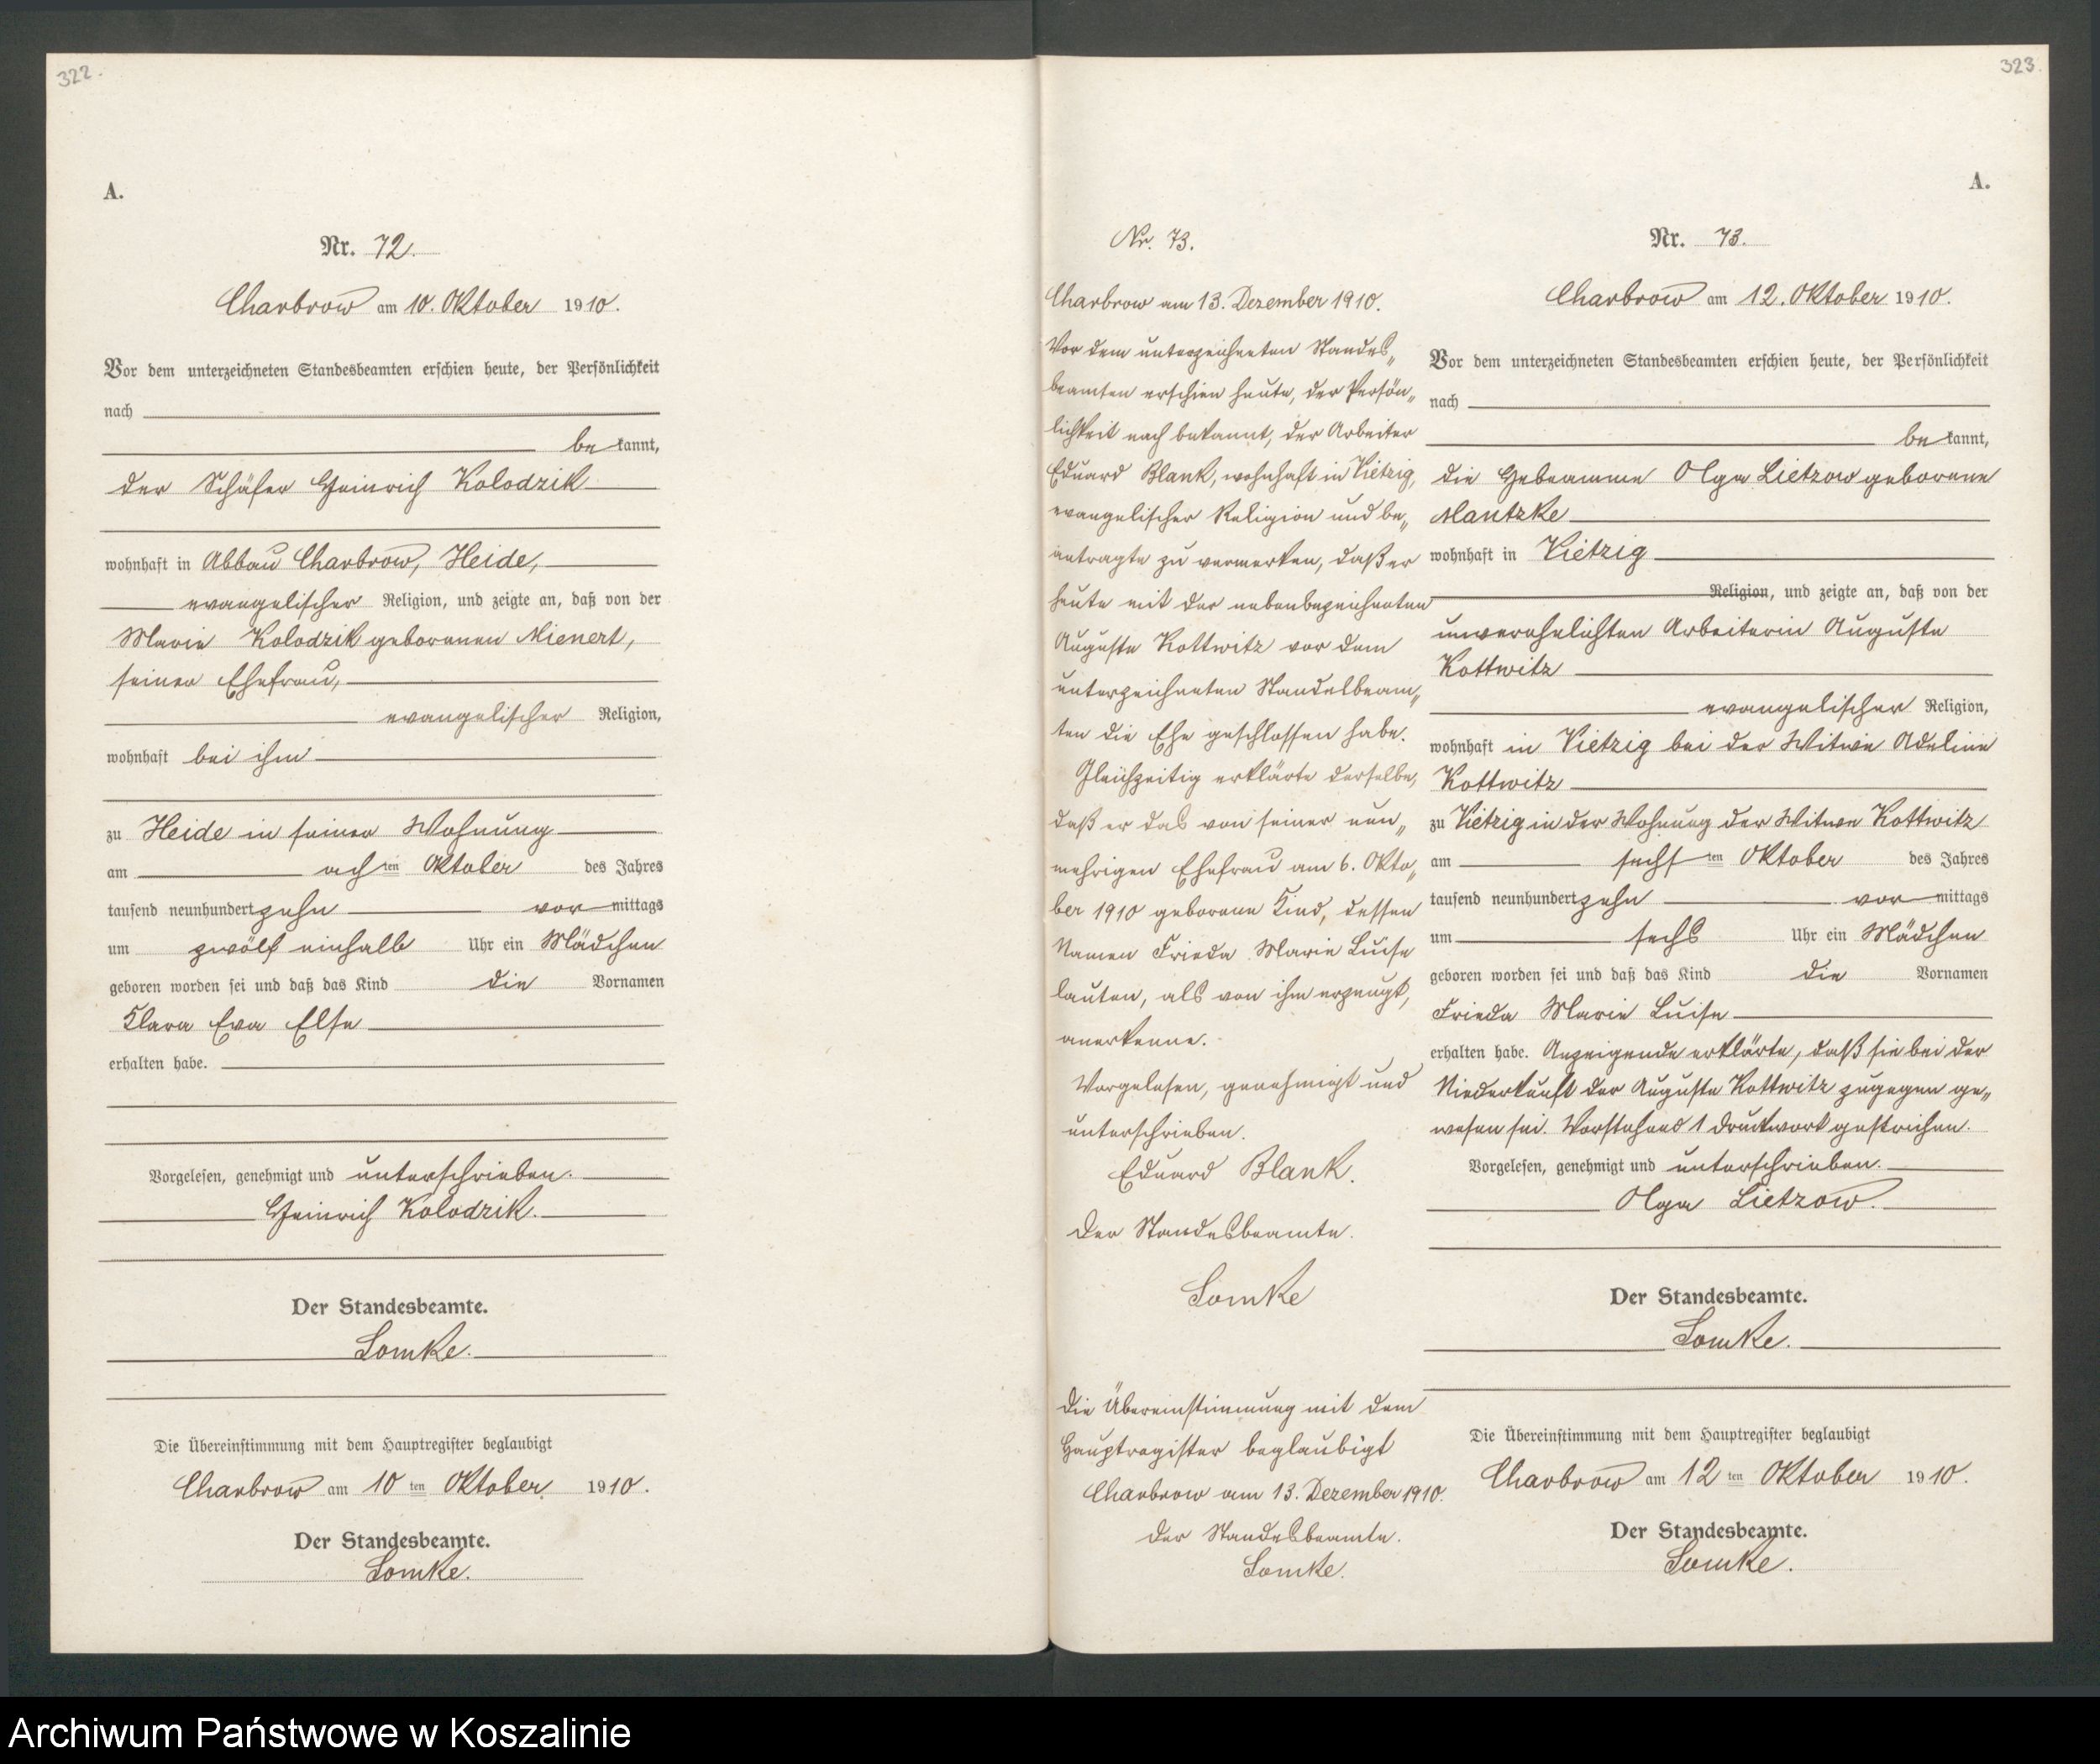 322.
A.
Nr. 72.
Charbrow am 10. Oktober 1910.
Vor dem unterzeichneten Standesbeamten erschien heute, der Persönlichkeit
nach
be kannt,
der Schäfer Heinrich Kolodzik
wohnhaft in Abbau Charbrow, Heide,
evangelischer Religion, und zeigte an, daß von der
Marie Kolodzik geborenen Mienert,
seiner Ehefrau,
evangelischer Religion,
wohnhaft bei ihm
zu Heide in seiner Wohnung
am achten Oktober des Jahres
tausend neunhundert zehn vor mittags
um zwölf einhalb Uhr ein Mädchen
geboren worden sei und daß das Kind die Vornamen
Klara Eva Else
erhalten habe.
Vorgelesen, genehmigt und unterschrieben.
Heinrich Kolodzik.
Der Standesbeamte.
Lomke.
Die Übereinstimmung mit dem Hauptregister beglaubigt
Charbrow am 10 ten Oktober 1910.
Der Standesbeamte.
Lomke.
323.
A.
Nr. 73.
Charbrow am 13. Dezember 1910.
Vor dem unterzeichneten Standes„
beamten erschien heute, der Persön„
lichkeit nach bekannt, der Arbeiter
Eduard Blank, wohnhaft in Vietzig,
evangelischer Religion und be„
antragte zu vermerken, daß er
heute mit der nebenbezeichneten
Auguste Kottwitz vor dem
unterzeichneten Standesbeam„
ten die Ehe geschlossen habe.
Gleichzeitig erklärte derselbe,
daß er das von seiner nun„
mehrigen Ehefrau am 6. Okto„
ber 1910 geborene Kind, dessen
Namen Frieda Marie Luise
lauten, als von ihm erzeugt,
anerkenne.
Vorgelesen, genehmigt und
unterschrieben.
Eduard Blank.
Der Standesbeamte.
Lomke
Die Übereinstimmung mit dem
Hauptregister beglaubigt
Charbrow am 13. Dezember 1910.
Der Standesbeamte.
Lomke.
Nr. 73.
Charbrow am 12. Oktober 1910.
Vor dem unterzeichneten Standesbeamten erschien heute, der Persönlichkeit
nach
be kannt,
die Hebeamme Olga Lietzow geborene
Mantzke
wohnhaft in Vietzig
Religion, und zeigte an, daß von der
unverehelichten Arbeiterin Auguste
Kottwitz
evangelischer Religion,
wohnhaft in Vietzig bei der Witwe Adeline
Kottwitz
zu Vietzig in der Wohnung der Witwe Kottwitz
am sechsten Oktober des Jahres
tausend neunhundert zehn vor mittags
um sechs Uhr ein Mädchen
geboren worden sei und daß das Kind die Vornamen
Frieda Marie Luise
erhalten habe. Anzeigende erklärte, daß sie bei der
Niederkunft der Auguste Kottwitz zugegen ge„
wesen sei. Vorstehend 1 Druckwort gestrichen.
Vorgelesen, genehmigt und unterschrieben.
Olga Lietzow.
Der Standesbeamte.
Lomke.
Die Übereinstimmung mit dem Hauptregister beglaubigt
Charbrow am 12 ten Oktober 1910.
Der Standesbeamte.
Lomke.
Archiwum Państwowe w Koszalinie